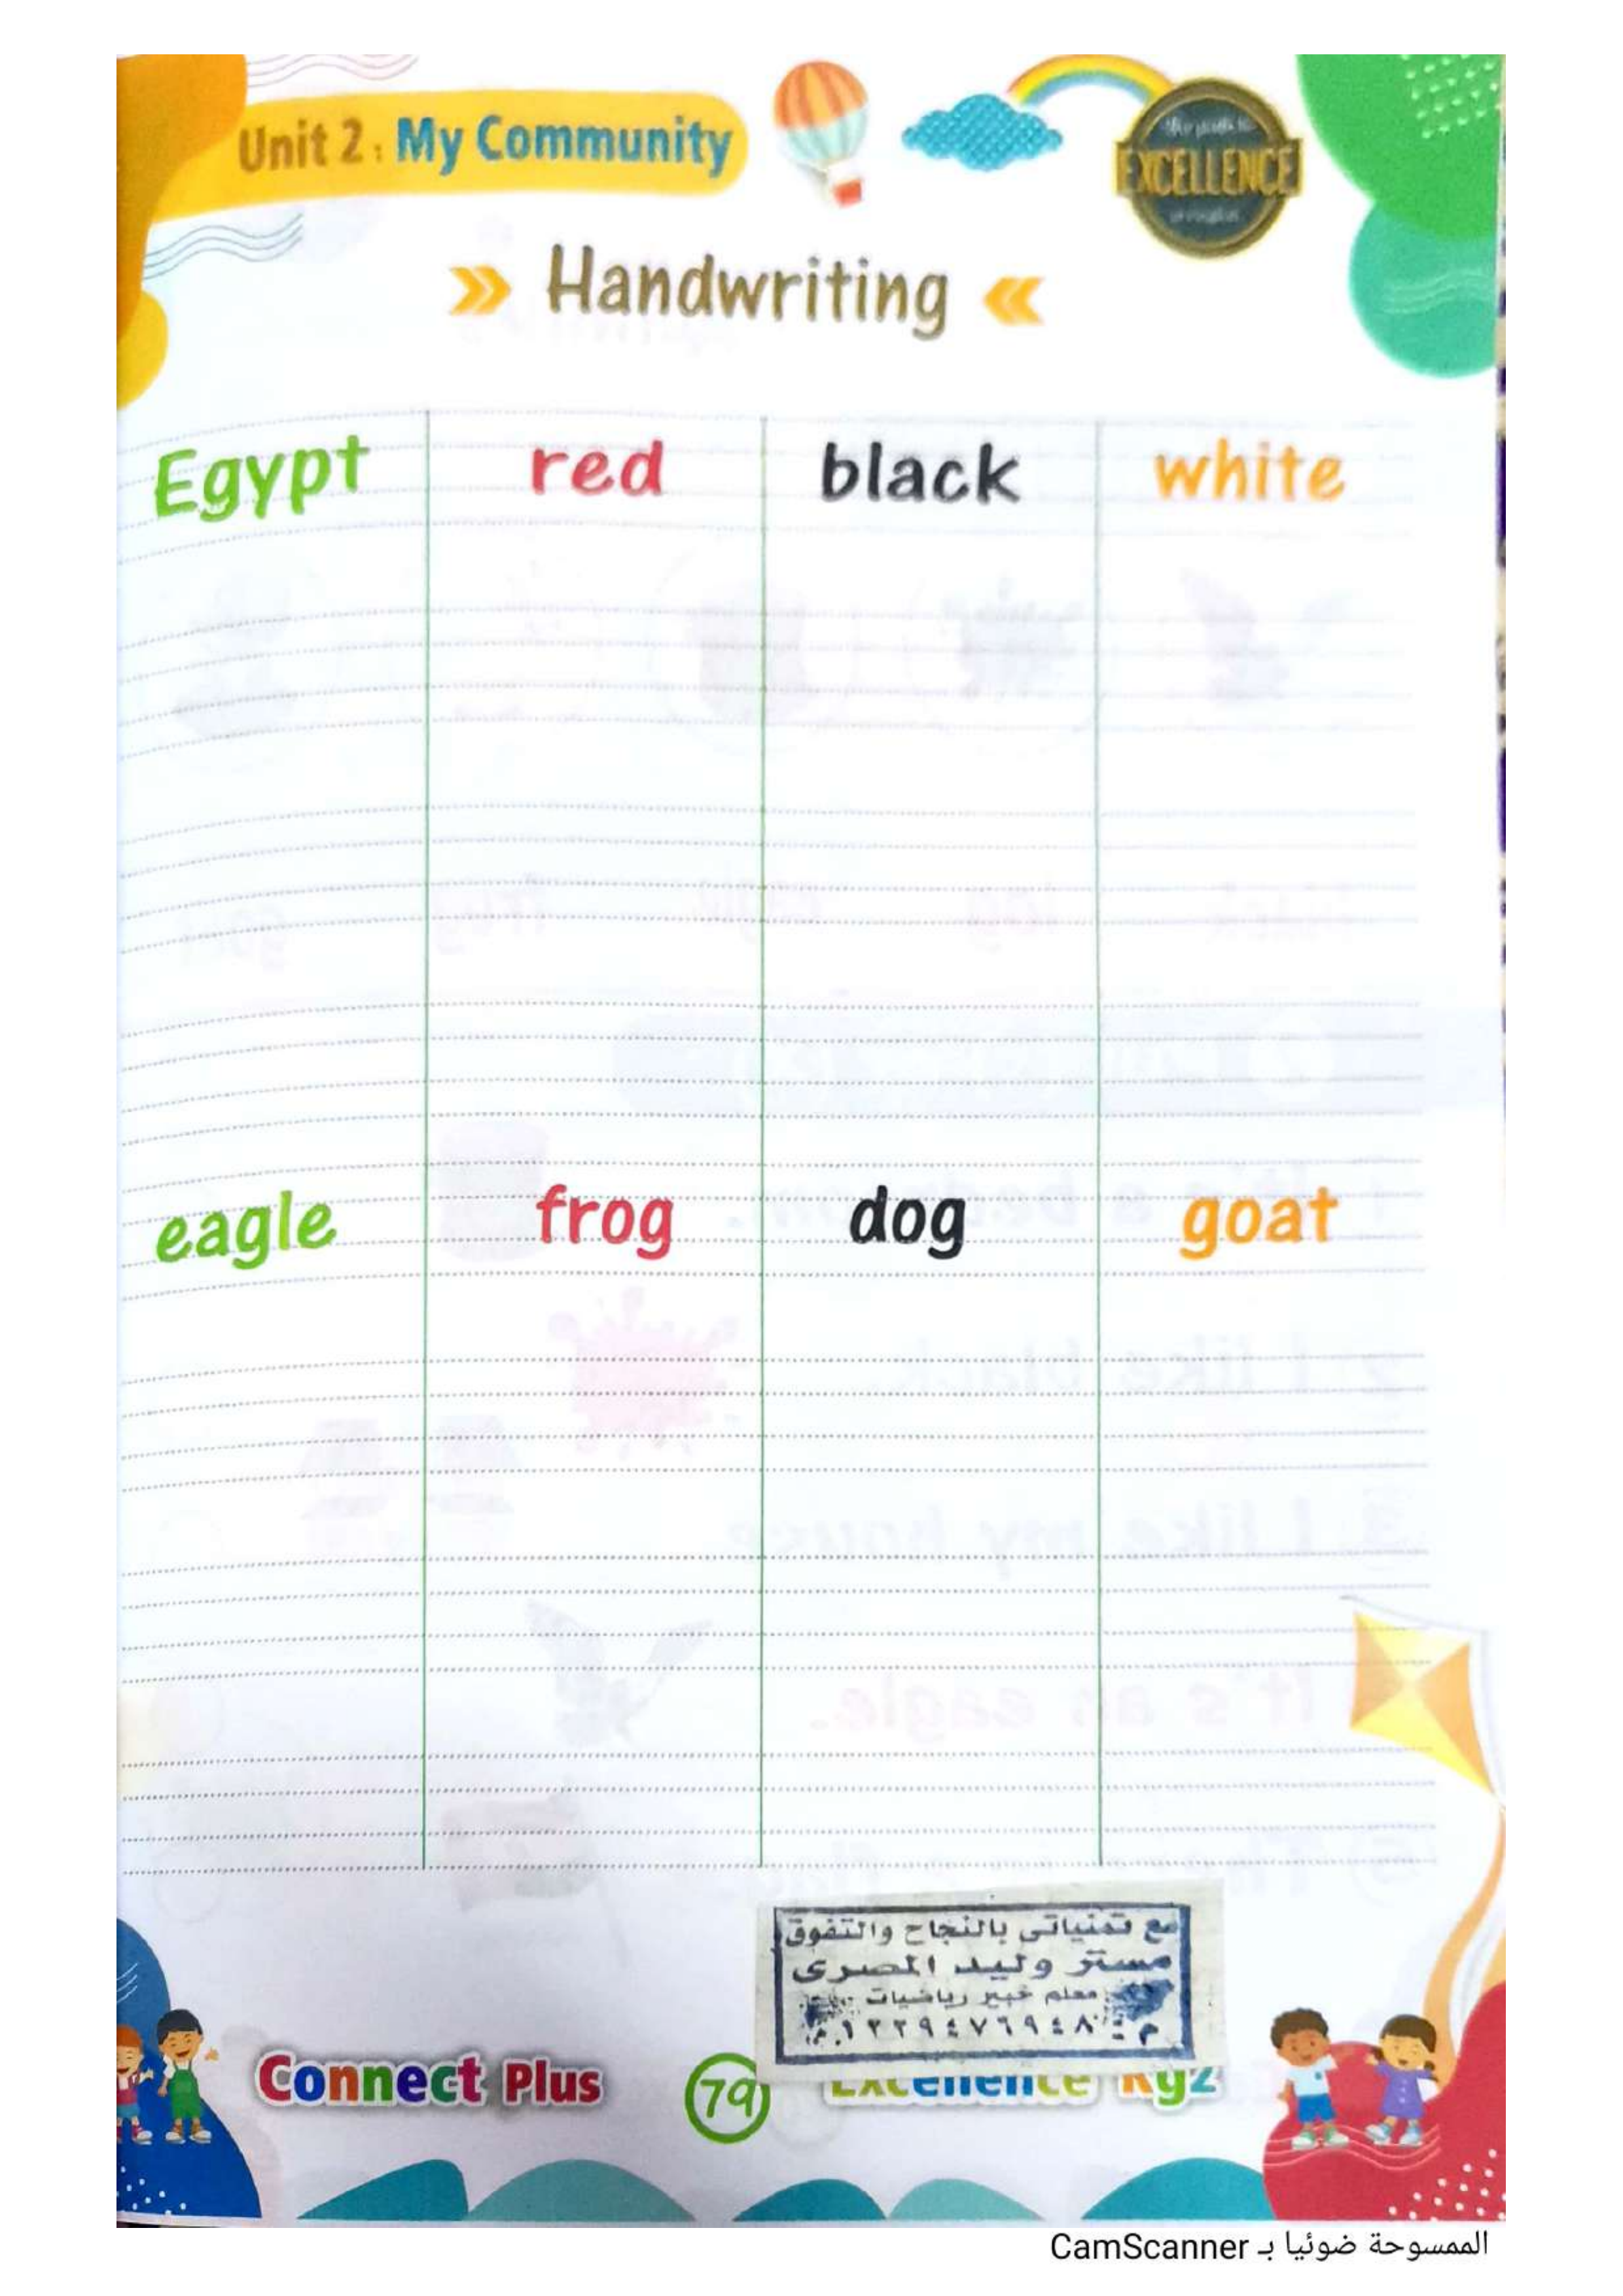 Unit 2: My Community
EXCELLENCE
Handwriting
Egypt red black white
eagle frog dog goat
مع تمنياتى بالنجاح والتفوق
مستر وليد المصرى
معلم خبير رياضيات
Connect Plus 79 Excellence Kg2
الممسوحة ضوئيا بـ CamScanner